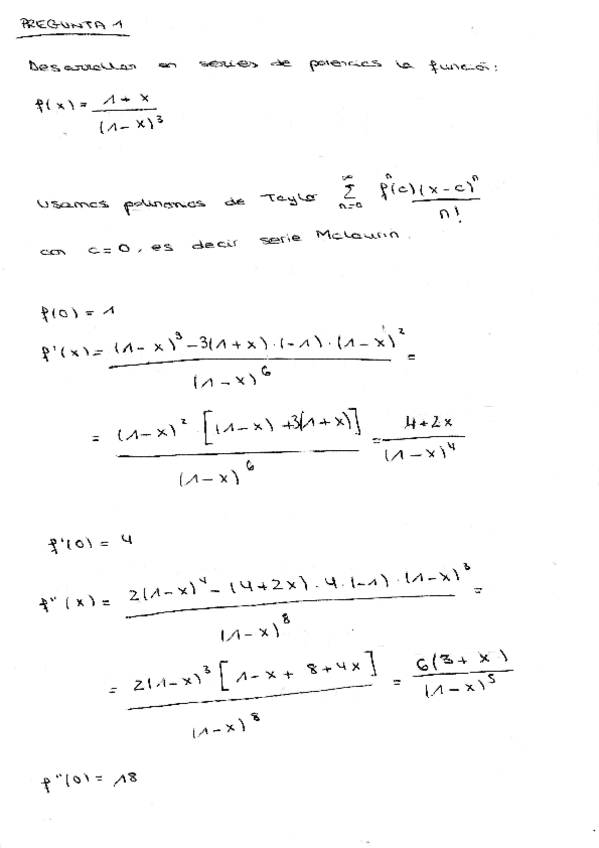 PREGUNTA 1
Desarrollar en series de potencias la función:
f(x) = (1 + x) / (1-x)³
Usamos polinomos de Taylo ∑_{n=0}^{∞} fⁿ(c)(x-c)ⁿ / n!
con c=0, es decir serie Mclaurin.
f(0) = 1
f'(x) = ((1-x)³ - 3(1+x)·(-1)·(1-x)²) / (1-x)⁶ =
= ((1-x)² [(1-x) + 3(1+x)]) / (1-x)⁶ = (4+2x) / (1-x)⁴
f'(0) = 4
f''(x) = (2(1-x)⁴ - (4+2x)·4·(-1)·(1-x)³) / (1-x)⁸ =
= (2(1-x)³ [1-x + 8+4x]) / (1-x)⁸ = 6(3+x) / (1-x)⁵
f''(0) = 18